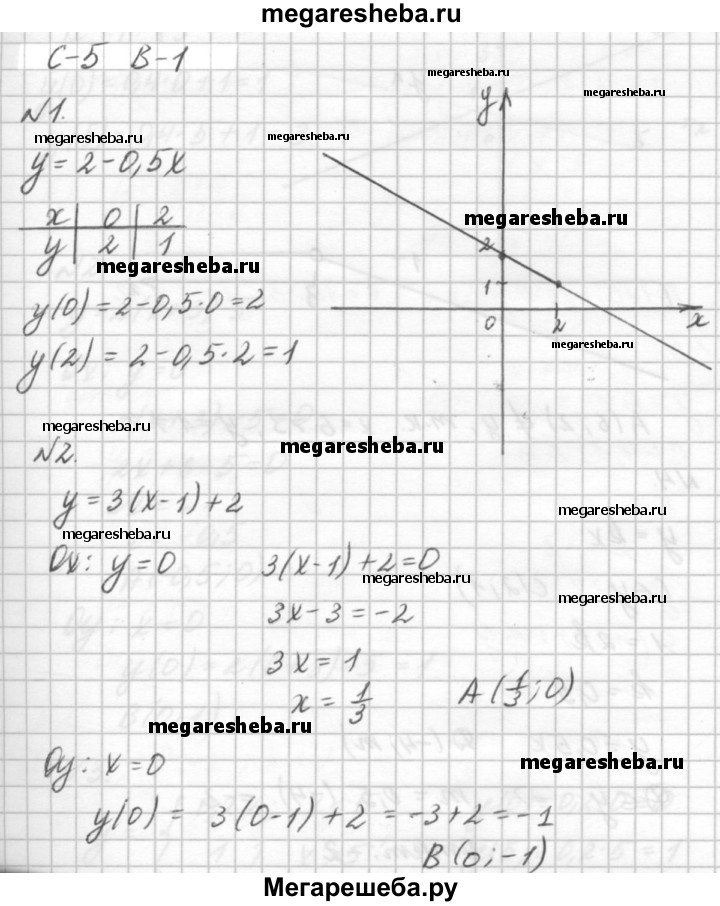 megaresheba.ru
С-5 В-1
megaresheba.ru
y
№1.
megaresheba.ru
megaresheba.ru
megaresheba.ru
y = 2 - 0,5x
x | 0 | 2
y | 2 | 1
megaresheba.ru
megaresheba.ru
2
1
0 2 x
y(0) = 2 - 0,5·0 = 2
y(2) = 2 - 0,5·2 = 1
megaresheba.ru
megaresheba.ru
megaresheba.ru
№2.
y = 3(x-1)+2
megaresheba.ru
megaresheba.ru
Ox: y = 0 3(x-1)+2=0
megaresheba.ru
megaresheba.ru
3x - 3 = -2
3x = 1
x = 1/3 A(1/3; 0)
megaresheba.ru
Oy: x = 0
megaresheba.ru
y(0) = 3(0-1)+2 = -3+2 = -1
B(0; -1)
Мегарешеба.ру